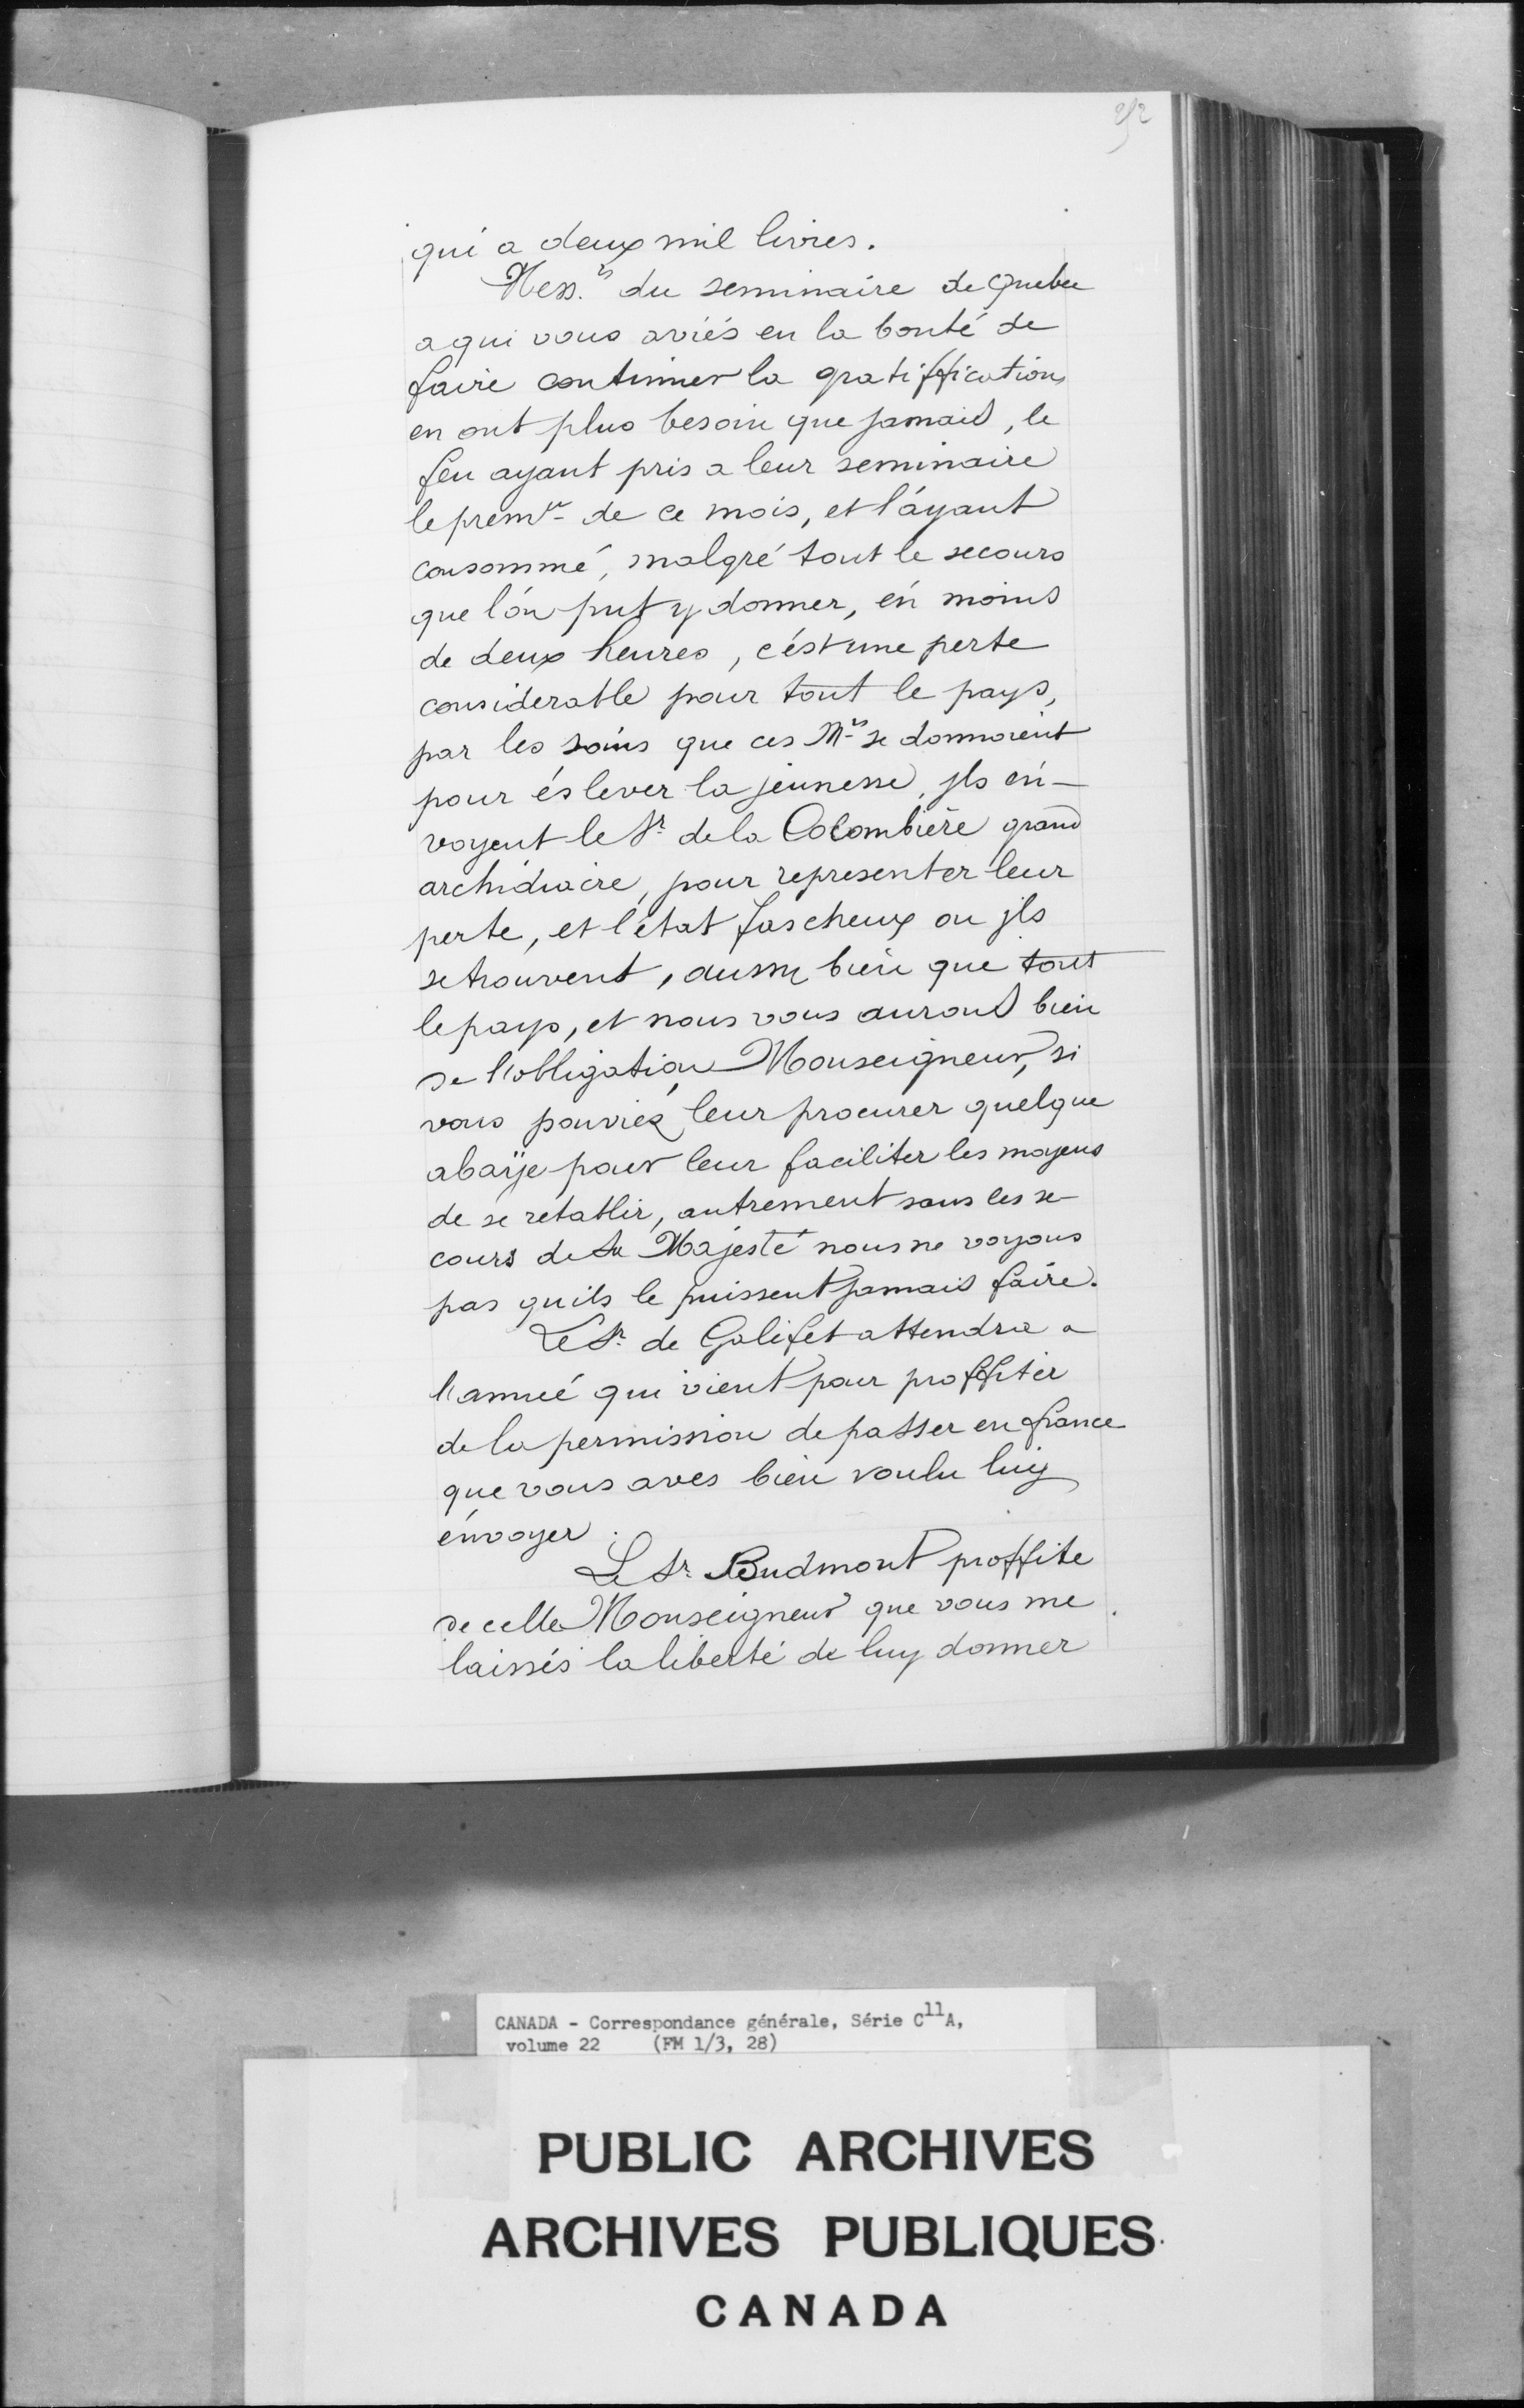 252
qui a deux mil livres.
Mess.rs du seminaire de Quebec
a qui vous aviés eu la bonté de
faire continuer la gratiffication,
en ont plus besoin que jamais, le
feu ayant pris a leur seminaire
le premier de ce mois, et l'áyant
consommé, malgré tout le secours
que l'ón put y donner, én moins
de deux heures, c'ést une perte
considerable pour tout le pays,
par les soins que ces Mrs se donnoient
pour éslever la jeunesse, jls én-
voyent le Sr. de la Colombière grand
archidiacre, pour representer leur
perte, et l'état fascheux ou jls
se trouvent, aussy bien que tout
le pays, et nous vous aurons bien
de l'obligation Monseigneur, si
vous pouviez leur procurer quelque
abaÿe pour leur faciliter les moyens
de se retablir, autrement sans les se-
cours de Sa Majesté nous ne voyons
pas qu'ils le puissent jamais faire.
Le Sr. de Galifet attendra a
l'année qui vient pour proffiter
de la permission de passer en france
que vous aves bien voulu luy
énvoyer.
Le Sr. proffite
de celle Monseigneur que vous me
laissés la liberté de luy donner
CANADA - Correspondance générale, Série C11A,
volume 22 (FM 1/3, 28)
PUBLIC ARCHIVES
ARCHIVES PUBLIQUES
CANADA